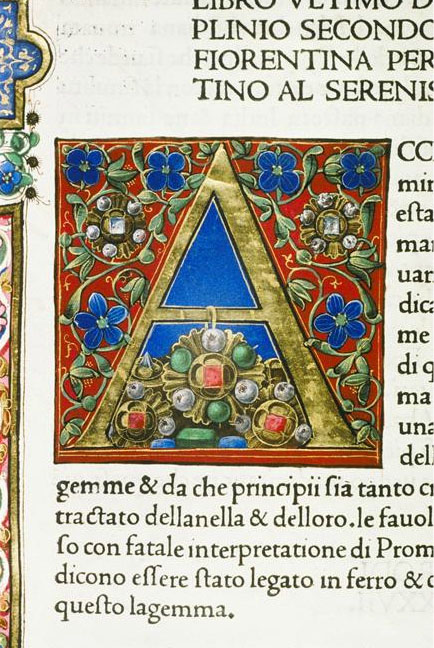 LIBRO VLTIMO D
PLINIO SECONDO
FIORENTINA PER
TINO AL SERENIS
A
CC
min
eſta
mar
uari
dica
me
di q
ma
una
dell
gemme & da che principii ſia tanto cr
tractato dellanella & delloro.le fauol
ſo con fatale interpretatione di Prom
dicono eſſere ſtato legato in ferro &
queſto lagemma.